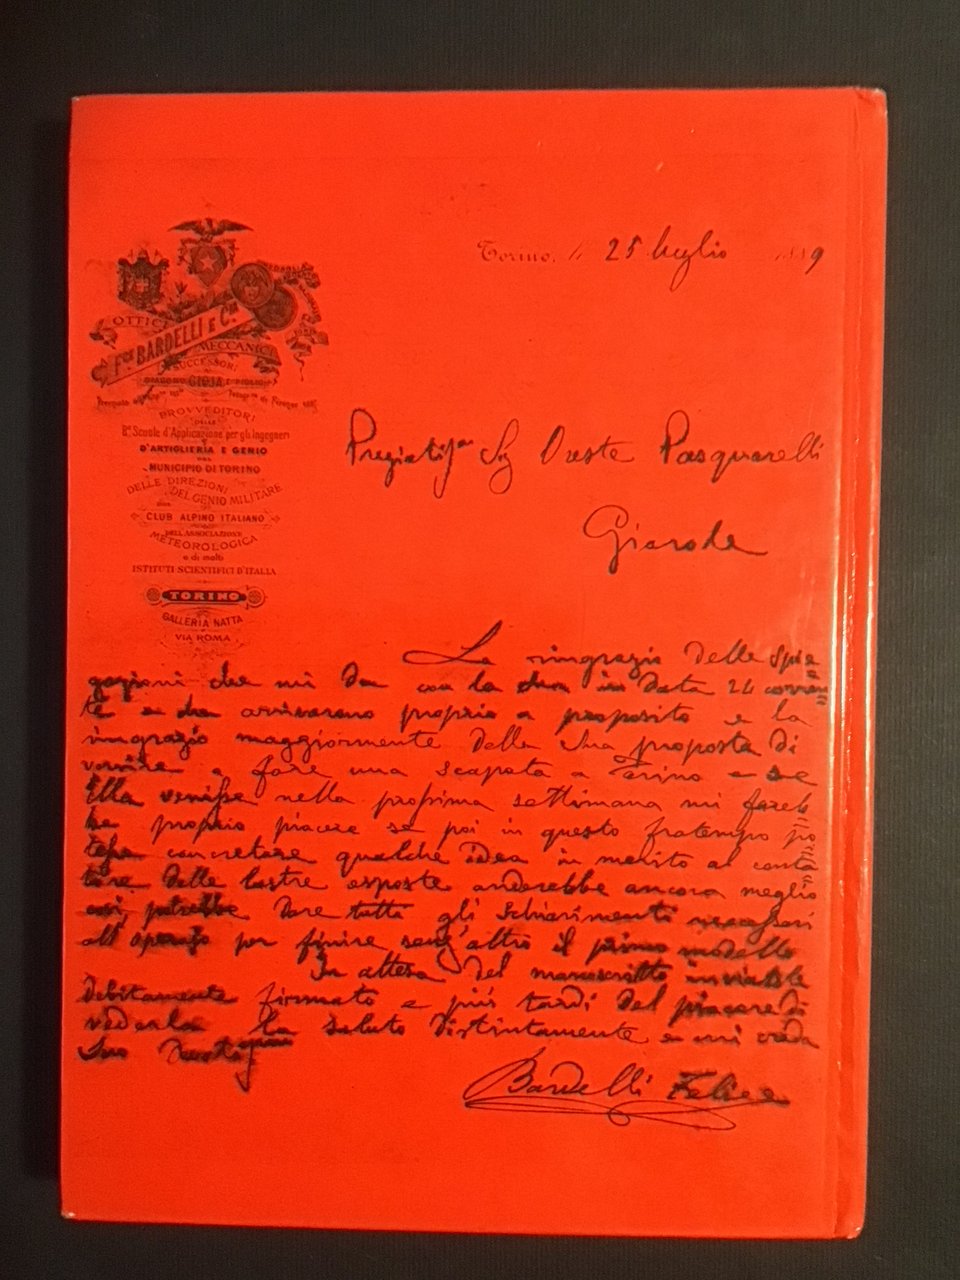 Torino, li 25 luglio 1889
OFFICI
F.ce BARDELLI E C.ia
MECCANICI
SUCCESSORI
GIACOMO GIOJA E FIGLIO
PROVVEDITORI
DELLE
R.e Scuole d'Applicazione per gli ingegneri
D'ARTIGLIERIA E GENIO
DEL
MUNICIPIO DI TORINO
DELLE DIREZIONI
DEL GENIO MILITARE
CLUB ALPINO ITALIANO
DELL'ASSOCIAZIONE
METEOROLOGICA
e di molti
ISTITUTI SCIENTIFICI D'ITALIA
TORINO
GALLERIA NATTA
VIA ROMA
Sig Oreste Pasquarelli
La ringrazio delle spie
gazioni che mi da con la in data 24 corren
te e arrivarono proprio a proposito e la
ringrazio maggiormente della sua proposta di
venire a fare una scapata a Torino e se
Ella venisse nella prossima settimana mi fareb
be proprio piacere se poi in questo fratempo po
tesse concretare qualche idea in merito al conta
tore delle lastre esposte anderebbe ancora meglio
così potrebbe dare tutti gli schiarimenti necessari
all'operajo per finire senz'altro il primo modello
In attesa del manoscritto inviatole
debitamente firmato e più tardi del piacere di
vederla la saluto distintamente e mi creda
Suo
Bardelli Felice